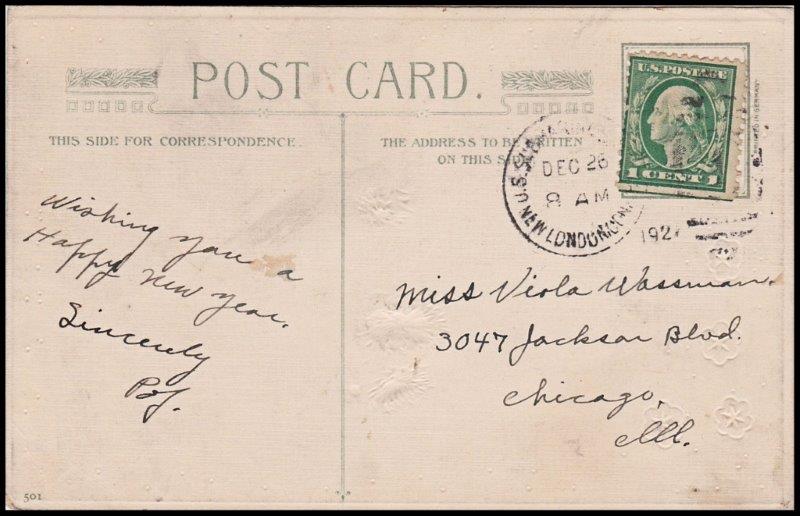 POST CARD.
THIS SIDE FOR CORRESPONDENCE.
THE ADDRESS TO BE WRITTEN
ON THIS SIDE
U.S. POSTAGE
1 CENT 1
U.S.S.
DEC 26
8 AM
NEW LONDON, CONN.
192
PRINTED IN GERMANY
Wishing you a
Happy New Year.
Sincerely
Miss Viola Wassman.
3047 Jackson Blvd.
Chicago,
Ill.
501